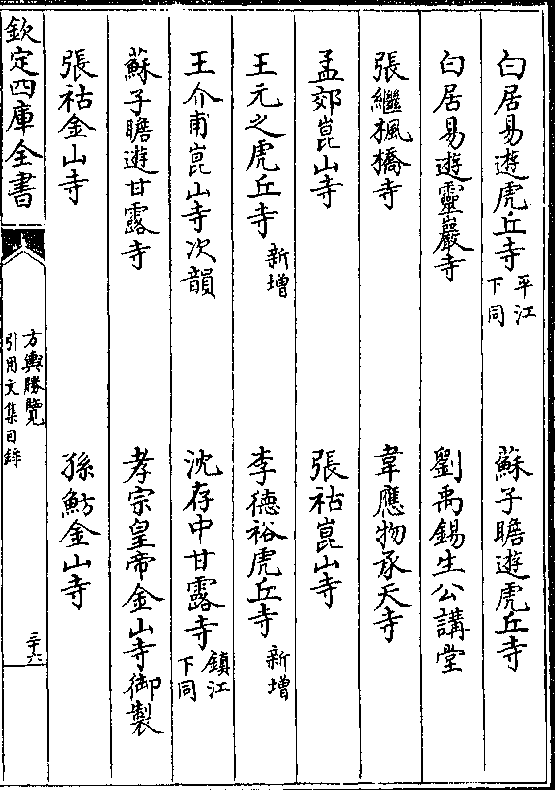 白居易遊虎丘寺平江下同　蘇子瞻遊虎丘寺
白居易遊靈巖寺　劉禹錫生公講堂
張繼楓橋寺　韋應物承天寺
孟郊崑山寺　張祜崑山寺
王元之虎丘寺新增　李德裕虎丘寺新增
王介甫崑山寺次韻　沈存中甘露寺鎮江下同
蘇子瞻遊甘露寺　孝宗皇帝金山寺御製
張祜金山寺　孫魴金山寺
欽定四庫全書
方輿勝覽
引用文集目錄
三十六